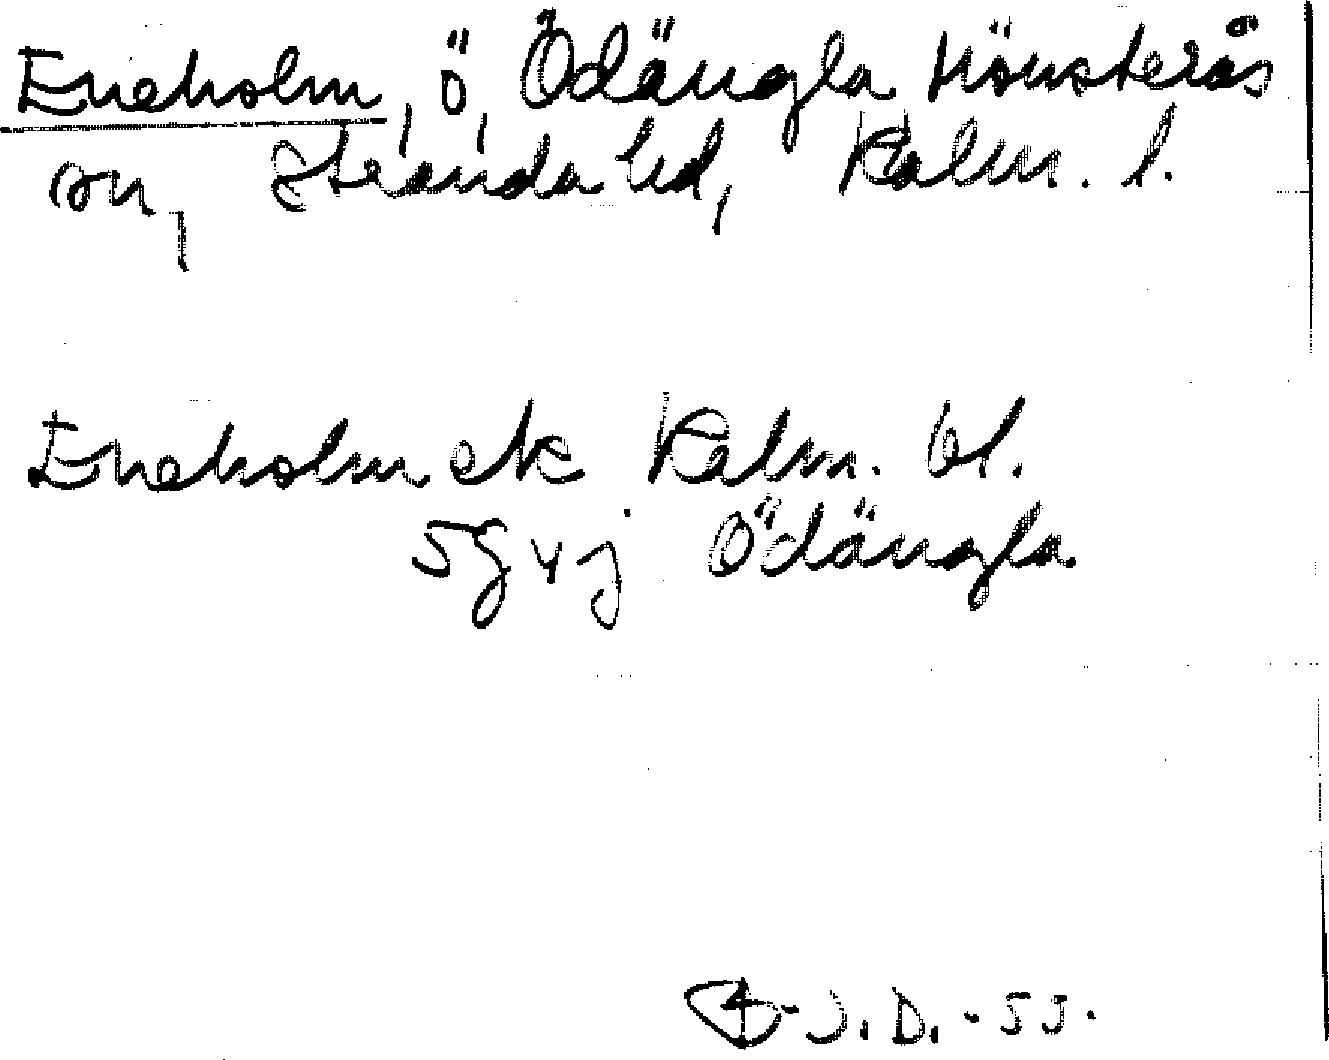 Eneholm, ö, Ödängla Mönsterås
sn, Stranda hd, Kalm. l.
Eneholm ek Kalm. bl.
5g4j Ödängla
J.D.-55.